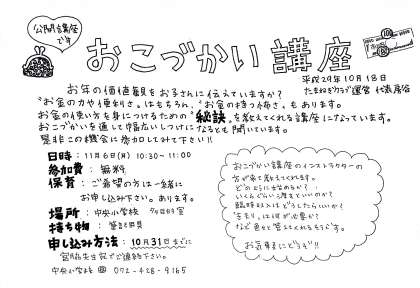 公開講座
です
おこづかい講座
平成29年10月18日
たまねぎクラブ運営
お金の価値観をお子さんに伝えていますか?
"お金の力や便利さ"はもちろん、"お金の持つ怖さ"もあります。
お金の使い方を身につけるための"秘訣"を教えてくれる講座になっています。
おこづかいを通して幅広いしつけになるとも聞いています。
是非この機会に参加してみて下さい!!
日時:11月6日(月) 10:30~11:00
参加費:無料
保育:ご希望の方は一緒に
お申し込み下さい。
場所:中央小学校 多目的室
持ち物:筆記用具
申し込み方法:10月31日までに
宮脇先生宛でご連絡下さい。
中央小学校 ☎ 072-428-9165
おこづかい講座のインストラクターの
方が来て教えてくれます。
どのように始めるか?
いくらぐらい渡すといいのか?
臨時収入はどうしたらいいか?
など色々と答えてくれるそうです。
お気軽にどうぞ!!